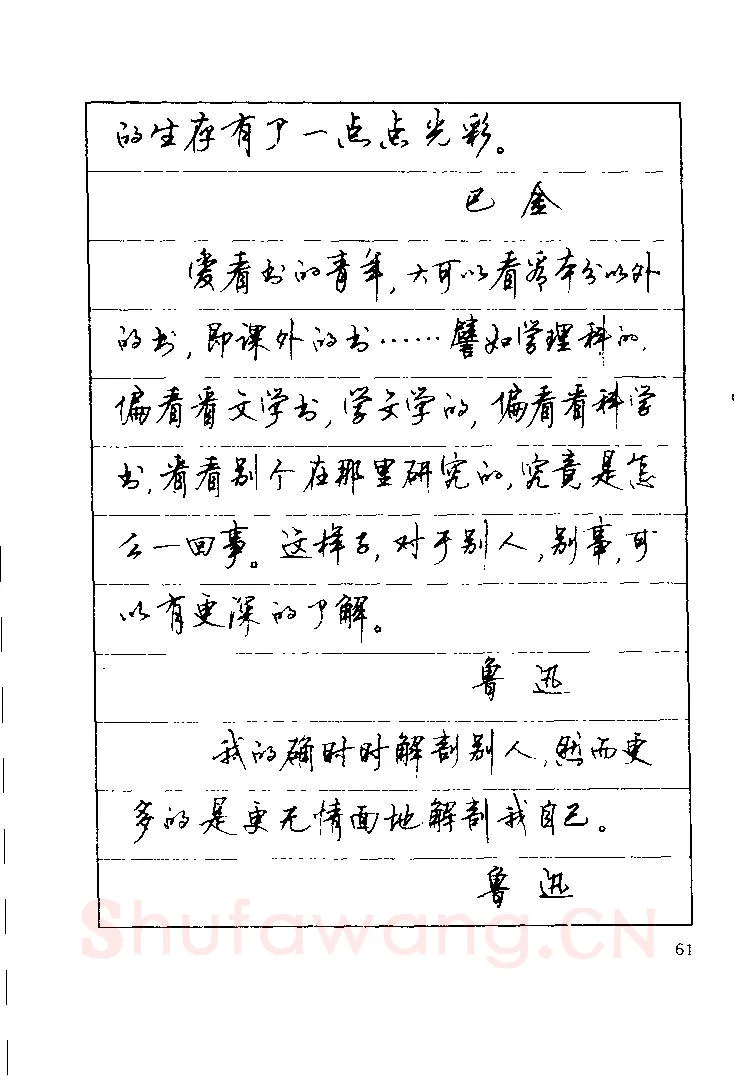 的生存有了一点点光彩。
巴金
爱看书的青年,大可以看看本分以外
的书,即课外的书……譬如学理科的,
偏看看文学书,学文学的,偏看看科学
书,看看别个在那里研究的,究竟是怎
么一回事。这样子,对于别人,别事,可
以有更深的了解。
鲁迅
我的确时时解剖别人,然而更
多的是更无情面地解剖我自己。
鲁迅
Shufawang.CN
61